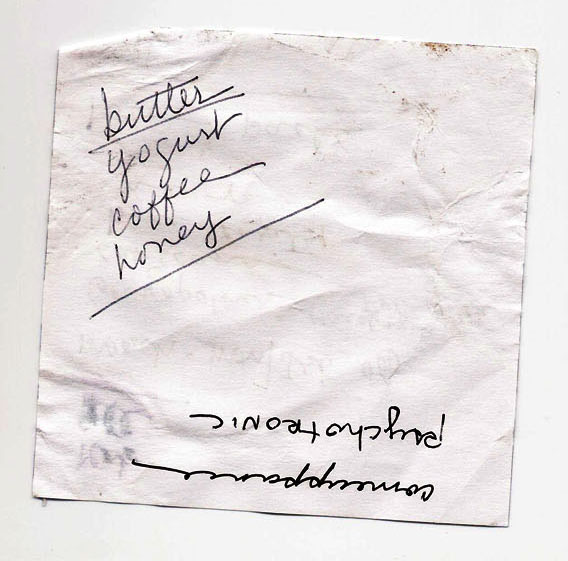 butter
yogurt
coffee
honey
comeuppance
psychotronic